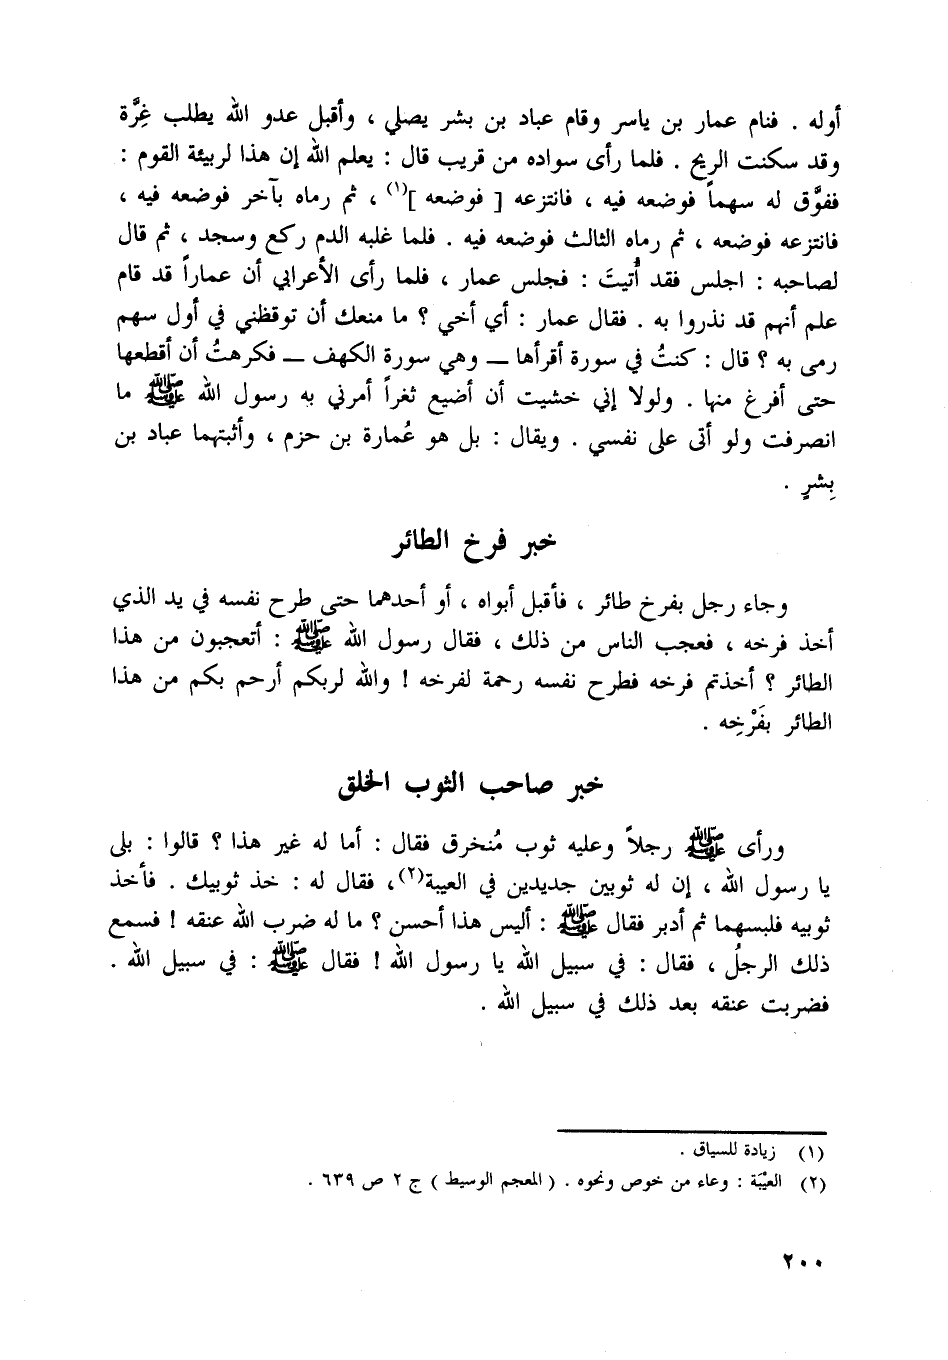 أوله . فنام عمار بن ياسر وقام عباد بن بشر يصلي ، وأقبل عدو الله يطلب غِرَّة
وقد سكنت الريح . فلما رأى سواده من قريب قال : يعلم الله إن هذا لربيئة القوم :
ففوَّق له سهماً فوضعه فيه ، فانتزعه [ فوضعه ](١) ، ثم رماه بآخر فوضعه فيه ،
فانتزعه فوضعه ، ثم رماه الثالث فوضعه فيه . فلما غلبه الدم ركع وسجد ، ثم قال
لصاحبه : اجلس فقد أُتيتَ : فجلس عمار ، فلما رأى الأعرابي أن عماراً قد قام
علم أنهم قد نذروا به . فقال عمار : أي أخي ؟ ما منعك أن توقظني في أول سهم
رمى به ؟ قال : كنتُ في سورة أقرأها ــ وهي سورة الكهف ــ فكرهتُ أن أقطعها
حتى أفرغ منها . ولولا إني خشيت أن أضيع ثغراً أمرني به رسول الله ﷺ ما
انصرفت ولو أتى على نفسي . ويقال : بل هو عُمارة بن حزم ، وأثبتهما عباد بن
بِشرٍ .
خبر فرخ الطائر
وجاء رجل بفرخ طائر ، فأقبل أبواه ، أو أحدهما حتى طرح نفسه في يد الذي
أخذ فرخه ، فعجب الناس من ذلك ، فقال رسول الله ﷺ : أتعجبون من هذا
الطائر ؟ أخذتم فرخه فطرح نفسه رحمة لفرخه ! والله لربكم أرحم بكم من هذا
الطائر بفَرْخِه .
خبر صاحب الثوب الخلق
ورأى ﷺ رجلاً وعليه ثوب مُنخرق فقال : أما له غير هذا ؟ قالوا : بلى
يا رسول الله ، إن له ثوبين جديدين في العيبة(٢)، فقال له : خذ ثوبيك . فأخذ
ثوبيه فلبسهما ثم أدبر فقال ﷺ : أليس هذا أحسن ؟ ما له ضرب الله عنقه ! فسمع
ذلك الرجلُ ، فقال : في سبيل الله يا رسول الله ! فقال ﷺ : في سبيل الله .
فضربت عنقه بعد ذلك في سبيل الله .
(١) زيادة للسياق .
(٢) العيْبَة : وعاء من خوص ونحوه . ( المعجم الوسيط ) ج ٢ ص ٦٣٩ .
٢٠٠